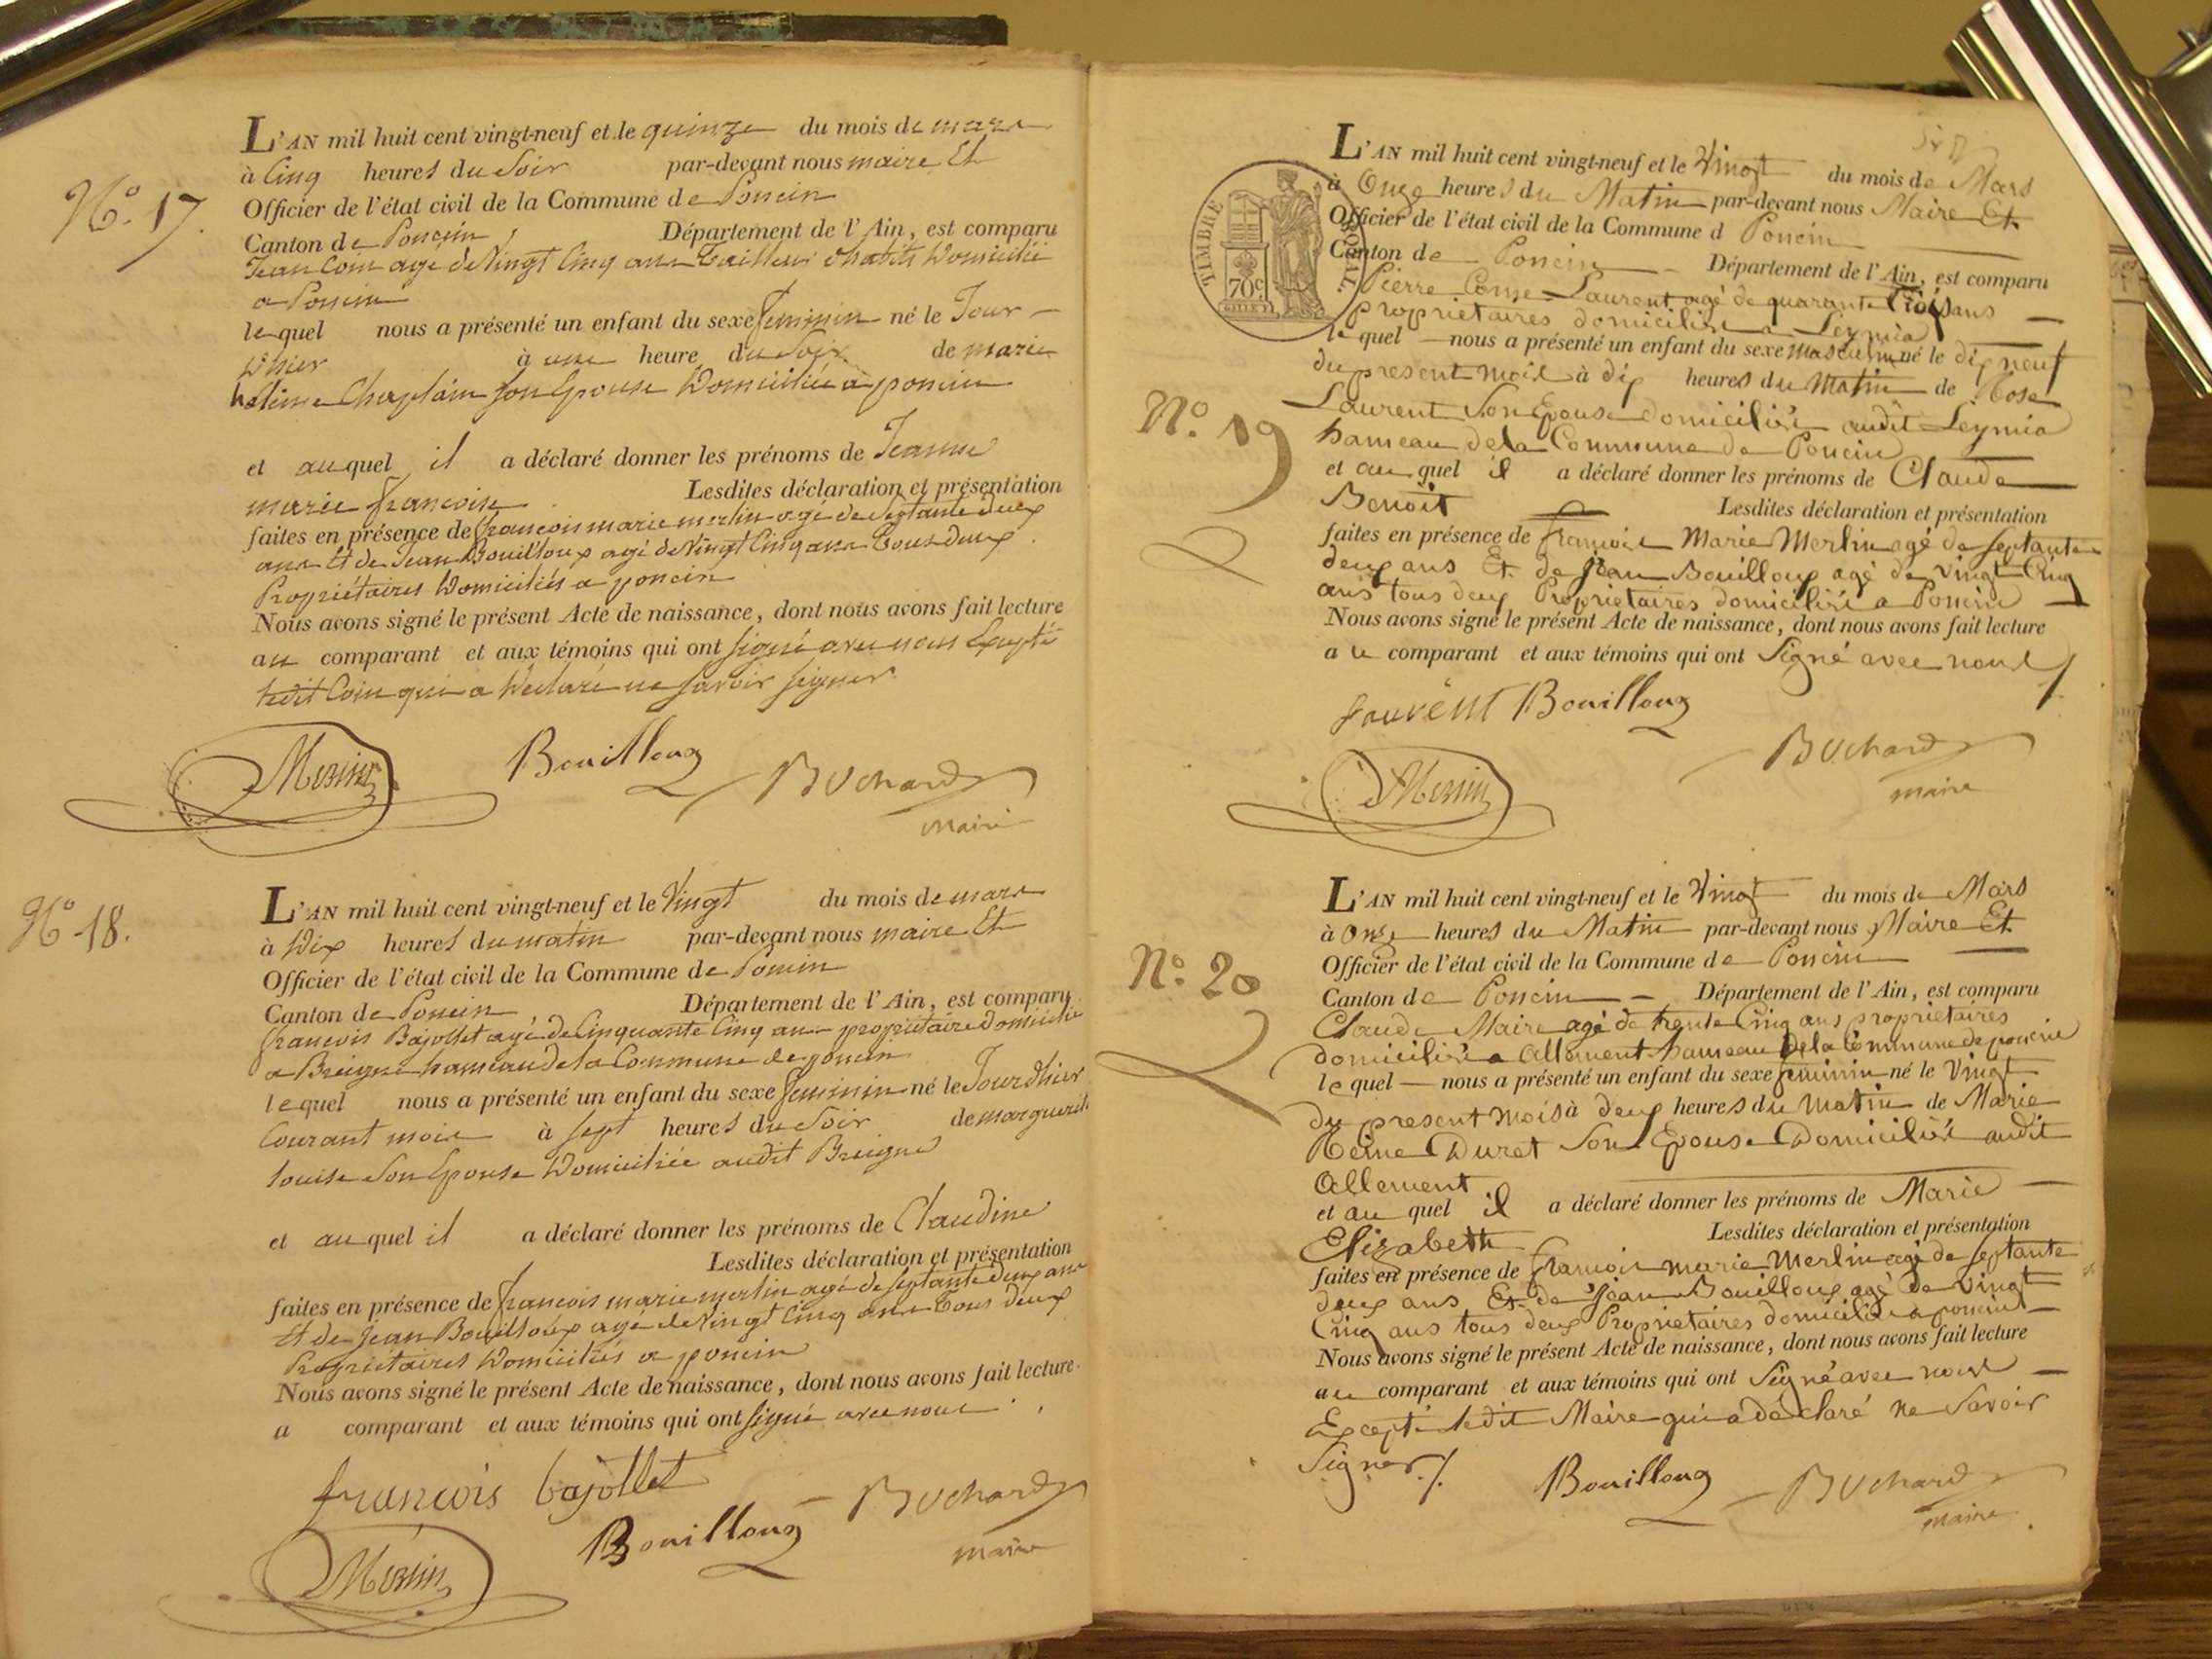 N.o 17.
L'AN mil huit cent vingt-neuf et le quinze du mois de mars
à Cinq heures du Soir par-devant nous maire Et
Officier de l'état civil de la Commune de Poncin
Canton de Poncin, Département de l'Ain, est comparu
Jean Coin agé de Vingt Cinq ans Tailleur d'habits Domicilié
a Poncin
lequel nous a présenté un enfant du sexe feminin né le Jour
D'hier à une heure du Soir de marie
heleine Chaplain son Epouse Domiciliée a poncin
et auquel il a déclaré donner les prénoms de Jeanne
marie francoise Lesdites déclaration et présentation
faites en présence de francois marie merlin agé de Septante deux
ans Et de Jean Bouilloux agé de Vingt Cinq ans Tous deux
Propriétaires Domiciliés a poncin
Nous avons signé le présent Acte de naissance, dont nous avons fait lecture
au comparant et aux témoins qui ont signé avec nous Excepté
ledit Coin qui a Declaré ne savoir signer
Merlin Bouilloux Bochard
maire
N.o 18.
L'AN mil huit cent vingt-neuf et le Vingt du mois de mars
à Dix heures du matin par-devant nous maire Et
Officier de l'état civil de la Commune de Poncin
Canton de Poncin, Département de l'Ain, est comparu
francois Bajollet agé de Cinquante Cinq ans propriétaire Domicilié
a Breigne hameau de la Commune de poncin
lequel nous a présenté un enfant du sexe feminin né le Jour d'hier
Courant mois à sept heures du Soir de marguerite
louise son Epouse Domiciliée audit Breigne
et auquel il a déclaré donner les prénoms de Claudine
Lesdites déclaration et présentation
faites en présence de francois marie merlin agé de septante deux ans
Et de Jean Bouilloux agé de Vingt Cinq ans Tous deux
Propriétaires Domiciliés a poncin
Nous avons signé le présent Acte de naissance, dont nous avons fait lecture
a comparant et aux témoins qui ont signé avec nous
francois bajollet
Merlin Bouilloux Bochard
maire
TIMBRE ROYAL.
70c
N.o 19
L'AN mil huit cent vingt-neuf et le Vingt du mois de Mars
à Onze heures du Matin par-devant nous Maire Et
Officier de l'état civil de la Commune d Poncin
Canton de Poncin Département de l'Ain, est comparu
Pierre Come Laurent agé de quarante trois ans
Propriétaires domicilié a Leymia
lequel nous a présenté un enfant du sexe masculin né le dix neuf
du present mois à dix heures du Matin de Rose
Laurent Son Epouse domiciliée audit Leymia
hameau de la Commune de Poncin
et auquel il a déclaré donner les prénoms de Claude
Benoit Lesdites déclaration et présentation
faites en présence de francois Marie Merlin agé de septante
deux ans Et de Jean Bouilloux agé de vingt Cinq
ans tous deux Propriétaires domiciliés a Poncin
Nous avons signé le présent Acte de naissance, dont nous avons fait lecture
au comparant et aux témoins qui ont Signé avec nous
Laurent Bouilloux
Merlin Bochard
maire
N.o 20
L'AN mil huit cent vingt-neuf et le Vingt du mois de Mars
à Onze heures du Matin par-devant nous Maire Et
Officier de l'état civil de la Commune de Poncin
Canton de Poncin Département de l'Ain, est comparu
Claude Maire agé de trente Cinq ans proprietaires
domicilié a Allement hameau de la Commune de poncin
lequel nous a présenté un enfant du sexe feminin né le Vingt
du present mois à deux heures du Matin de Marie
Reine Duret Son Epouse Domiciliée audit
Allement
et auquel il a déclaré donner les prénoms de Marie
Elizabeth Lesdites déclaration et présentation
faites en présence de francois marie Merlin agé de septante
deux ans Et de Jean Bouilloux agé de Vingt
Cinq ans tous deux Propriétaires domiciliés a poncin
Nous avons signé le présent Acte de naissance, dont nous avons fait lecture
au comparant et aux témoins qui ont Signé avec nous
Excepté ledit Maire qui a déclaré ne Savoir
Signer
Bouilloux Bochard
maire